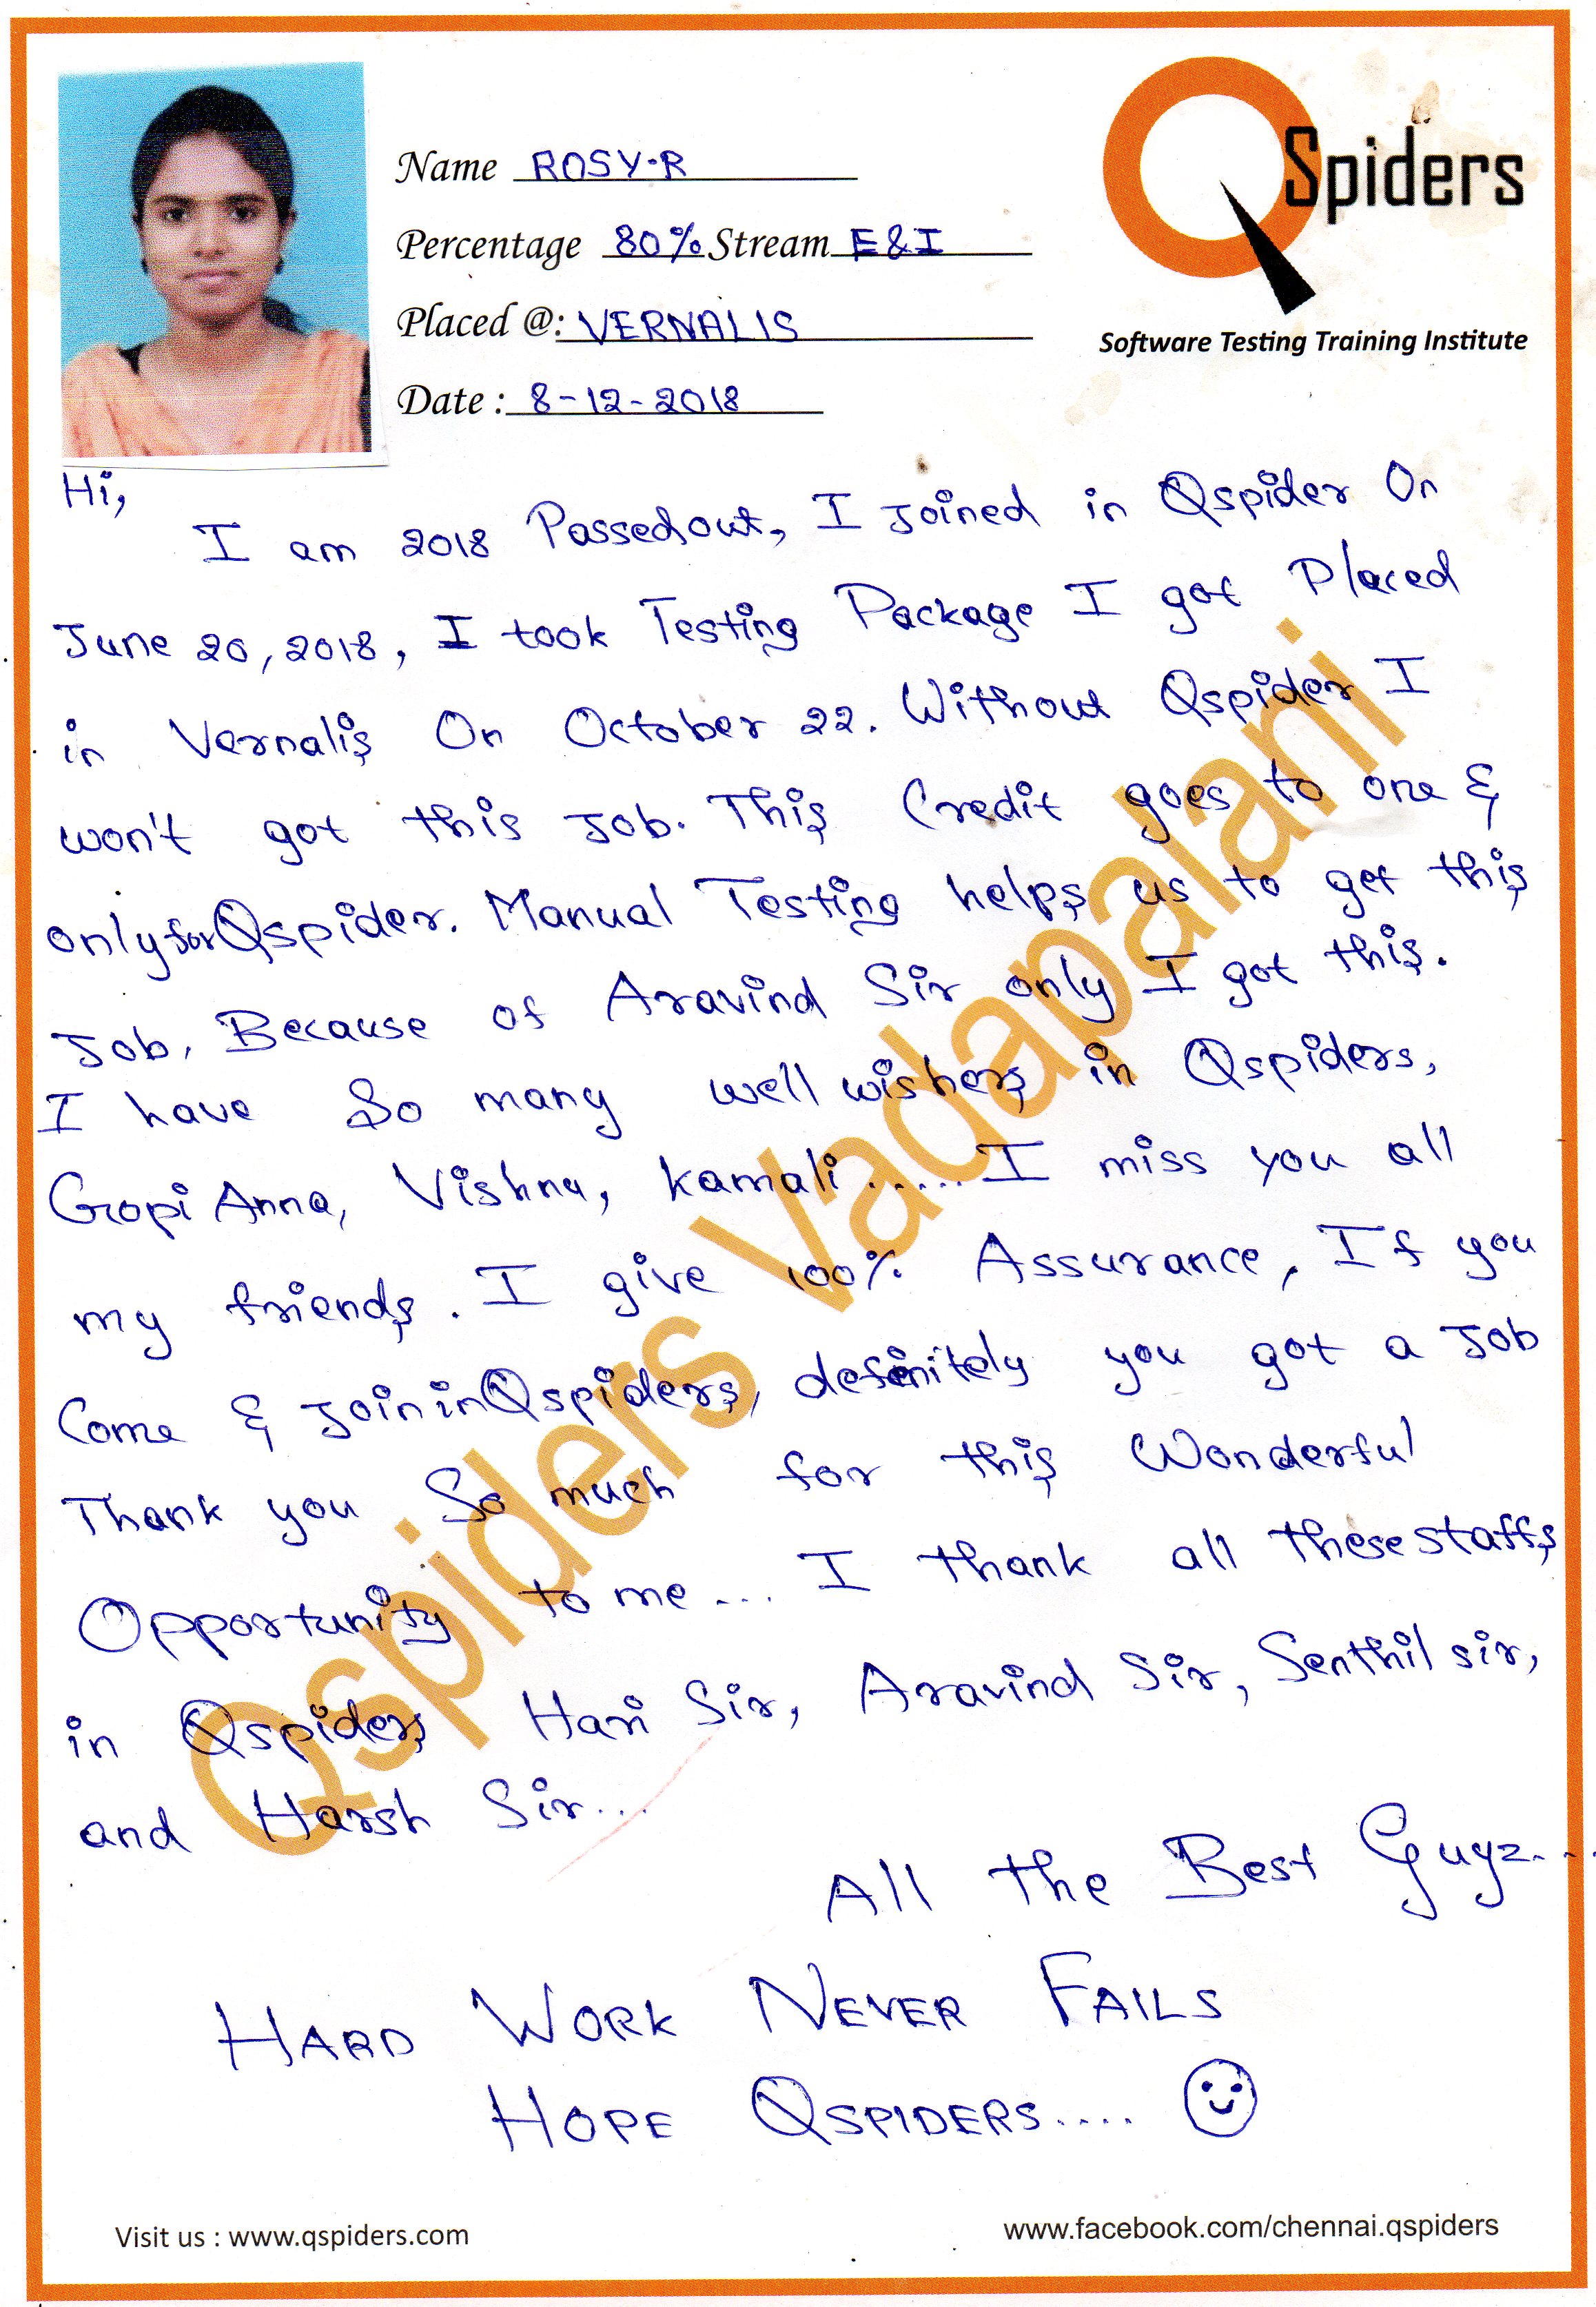 Name ROSY.R
Percentage 80% Stream E&I
Placed @: VERNALIS
Date : 8-12-2018
QSpiders
Software Testing Training Institute
Hi,
I am 2018 Passedout, I Joined in Qspider On
June 20, 2018, I took Testing Package I got Placed
in Vernalis On October 22. Without Qspider I
won't got this Job. This Credit goes to one &
only for Qspider. Manual Testing helps us to get this
Job. Because of Aravind Sir only I got this.
I have So many well wishers in Qspiders,
Gopi Anna, Vishnu, Kamali...... I miss you all
my friends. I give 100% Assurance, If you
Come & Join in Qspiders, definitely you got a Job
Thank you So much for this Wonderful
Opportunity to me... I thank all these staffs
in Qspiders Hari Sir, Aravind Sir, Senthil sir,
and Harsh Sir...
All the Best Guyz...
HARD WORK NEVER FAILS
HOPE QSPIDERS....
Qspiders Vadapalani
Visit us : www.qspiders.com
www.facebook.com/chennai.qspiders